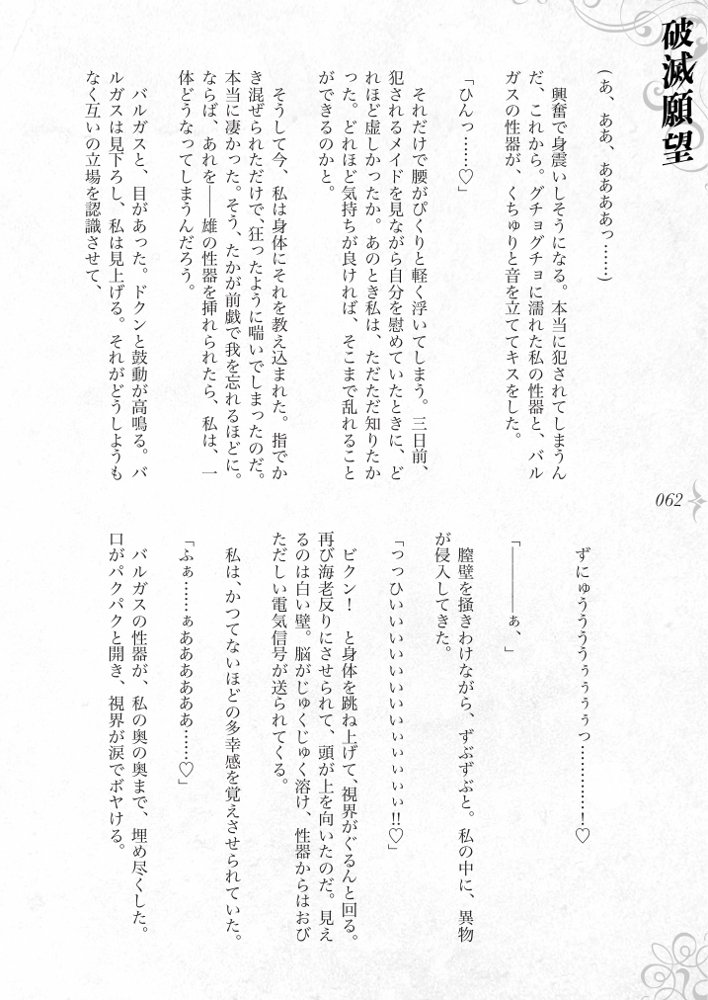 破滅願望
(あ、ああ、ああああっ……)
　興奮で身震いしそうになる。本当に犯されてしまうん
だ、これから。グチョグチョに濡れた私の性器と、バル
ガスの性器が、くちゅりと音を立ててキスをした。
「ひんっ……♡」
　それだけで腰がぴくりと軽く浮いてしまう。三日前、
犯されるメイドを見ながら自分を慰めていたときに、ど
れほど虚しかったか。あのとき私は、ただただ知りたか
った。どれほど気持ちが良ければ、そこまで乱れること
ができるのかと。
　そうして今、私は身体にそれを教え込まれた。指でか
き混ぜられただけで、狂ったように喘いでしまったのだ。
本当に凄かった。そう、たかが前戯で我を忘れるほどに。
ならば、あれを――雄の性器を挿れられたら、私は、一
体どうなってしまうんだろう。
　バルガスと、目があった。ドクンと鼓動が高鳴る。バ
ルガスは見下ろし、私は見上げる。それがどうしようも
なく互いの立場を認識させて、
062
ずにゅうううぅぅぅぅっ…………！♡
「――――ぁ、」
　膣壁を掻きわけながら、ずぶずぶと。私の中に、異物
が侵入してきた。
「っっひいいいいいいいいいぃぃぃぃぃ!!♡」
　ビクン！　と身体を跳ね上げて、視界がぐるんと回る。
再び海老反りにさせられて、頭が上を向いたのだ。見え
るのは白い壁。脳がじゅくじゅく溶け、性器からはおび
ただしい電気信号が送られてくる。
　私は、かつてないほどの多幸感を覚えさせられていた。
「ふぁ……ぁああああああ……♡」
　バルガスの性器が、私の奥の奥まで、埋め尽くした。
口がパクパクと開き、視界が涙でボヤける。